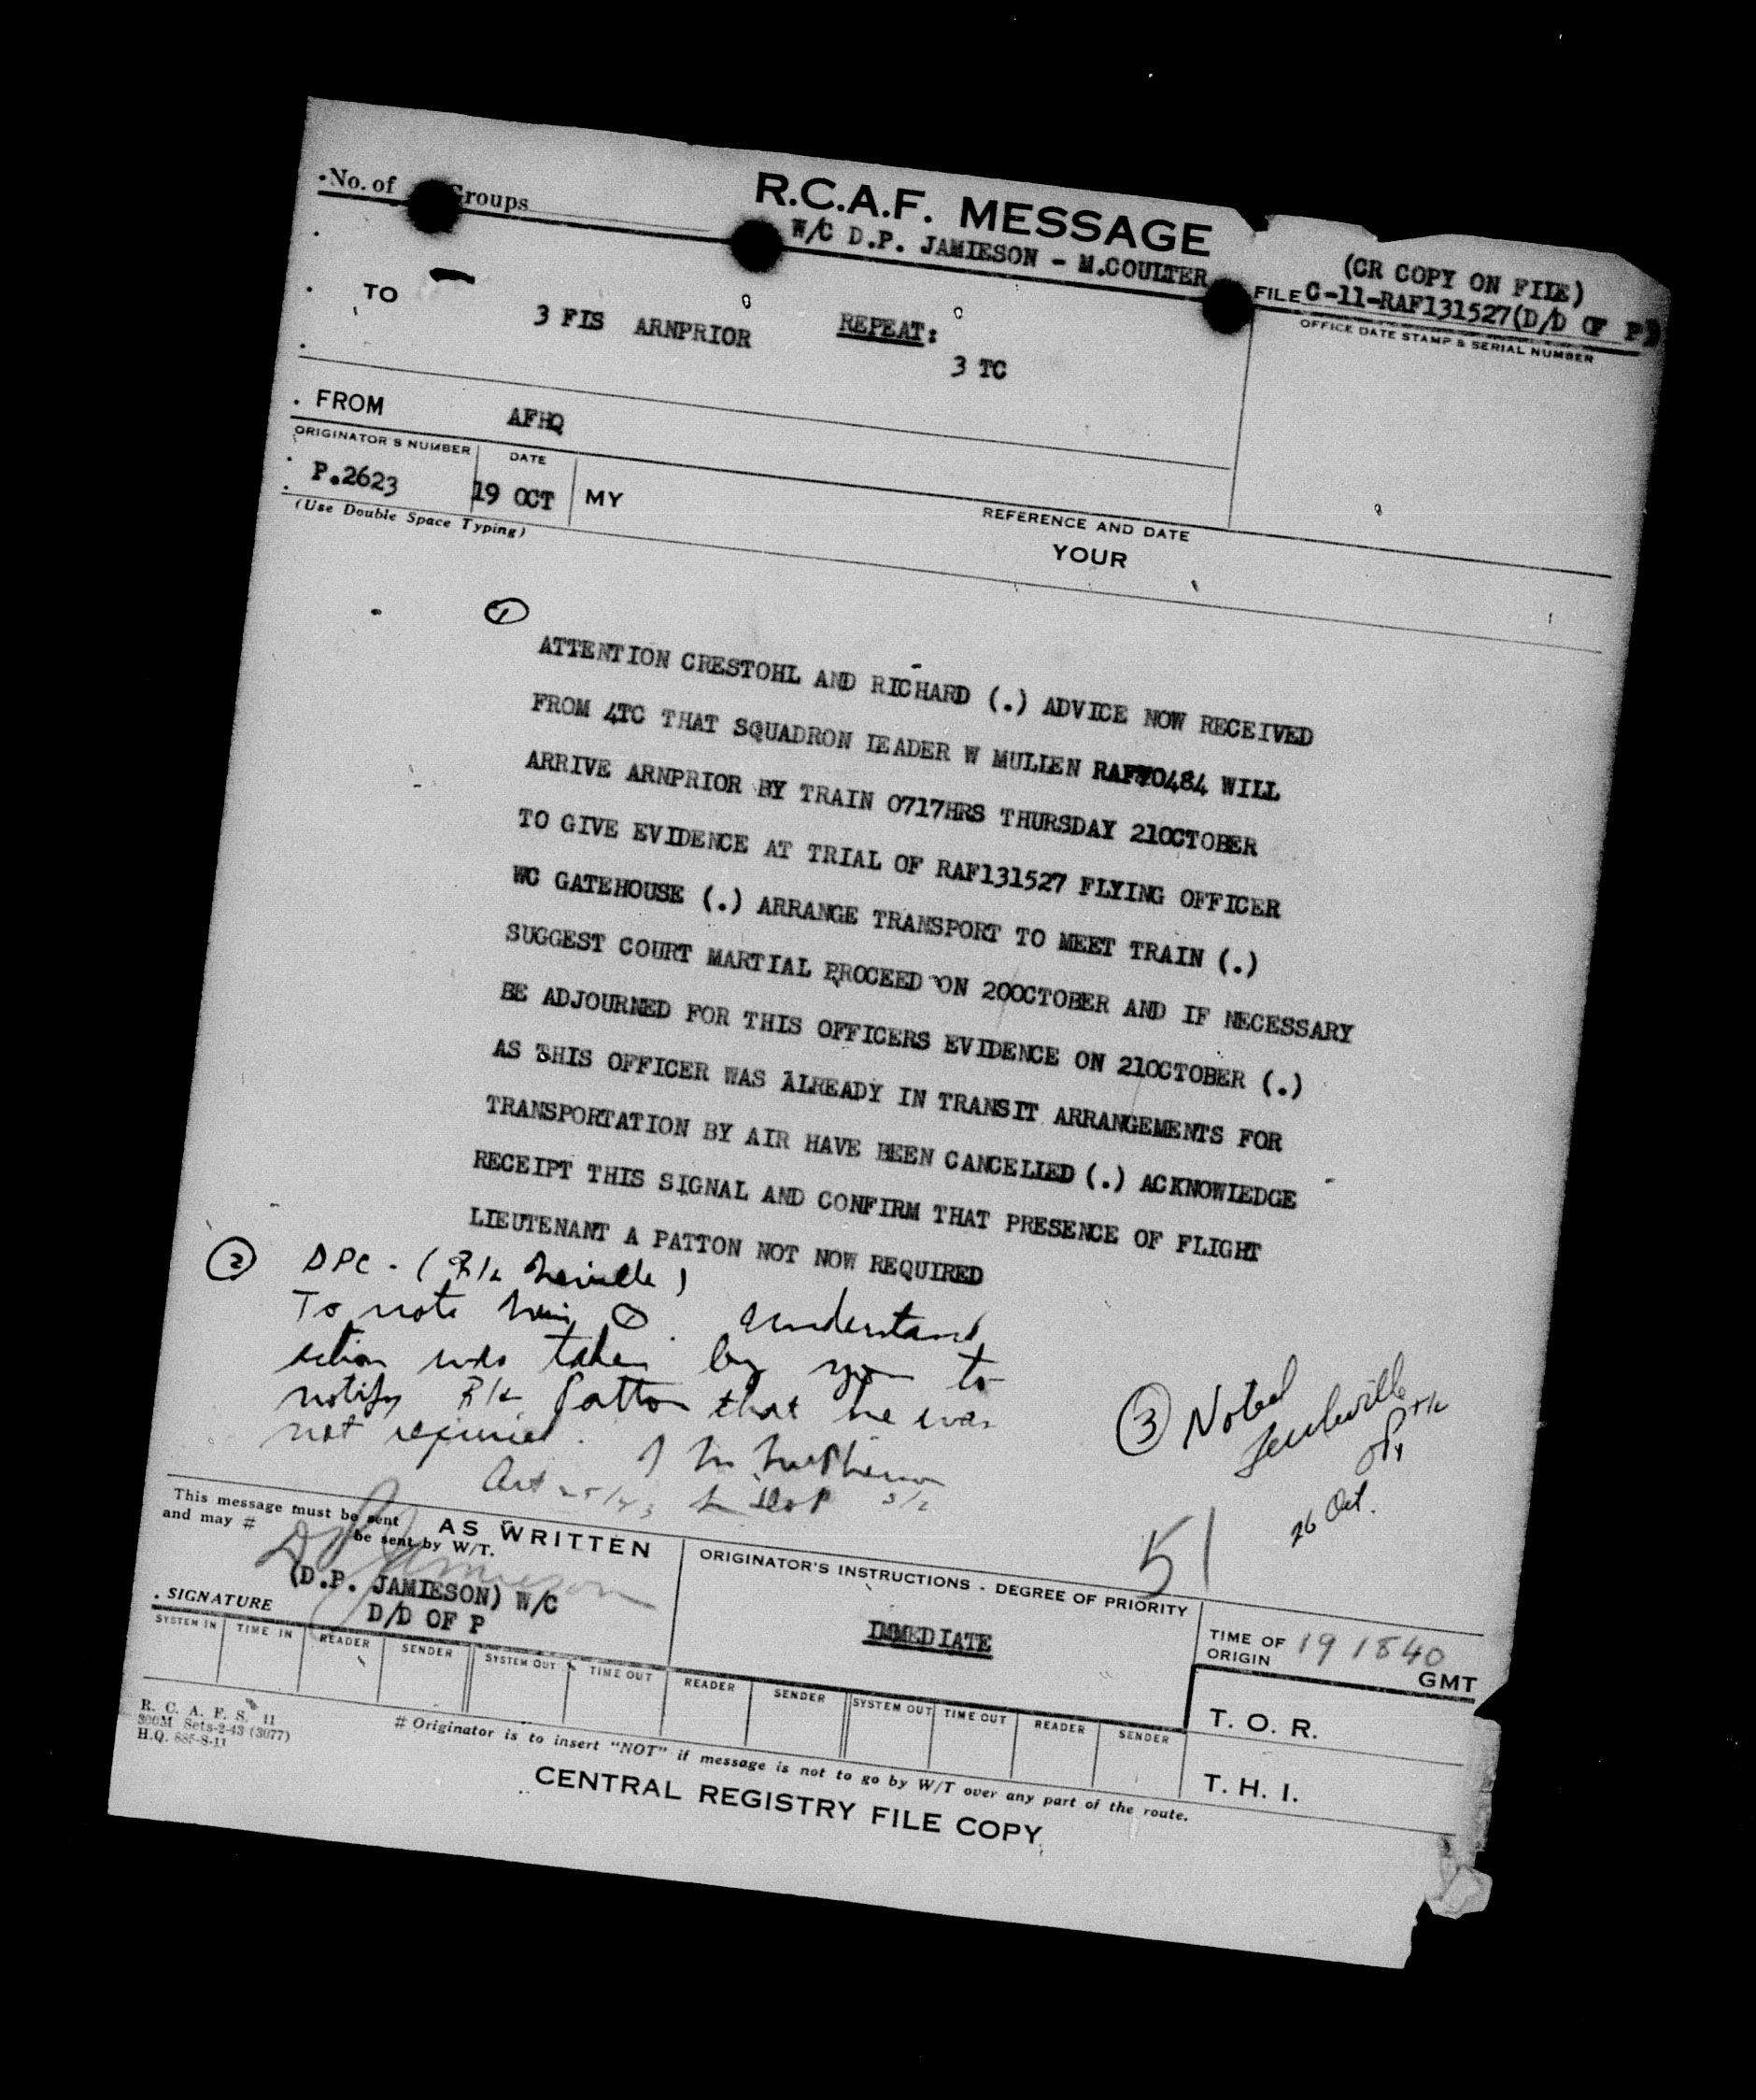 No. of Groups
R.C.A.F. MESSAGE
W/C D.P. JAMIESON - M.COULTER
(CR COPY ON FILE)
FILE C-11-RAF131527(D/D OF P)
OFFICE DATE STAMP & SERIAL NUMBER
TO 3 FIS ARNPRIOR REPEAT:
3 TC
FROM AFHQ
ORIGINATOR'S NUMBER DATE
P.2623 19 OCT MY
REFERENCE AND DATE
YOUR
(Use Double Space Typing)
1
ATTENTION CRESTOHL AND RICHARD (.) ADVICE NOW RECEIVED
FROM 4TC THAT SQUADRON LEADER W MULLEN RAF70484 WILL
ARRIVE ARNPRIOR BY TRAIN 0717HRS THURSDAY 21OCTOBER
TO GIVE EVIDENCE AT TRIAL OF RAF131527 FLYING OFFICER
WC GATEHOUSE (.) ARRANGE TRANSPORT TO MEET TRAIN (.)
SUGGEST COURT MARTIAL PROCEED ON 20OCTOBER AND IF NECESSARY
BE ADJOURNED FOR THIS OFFICERS EVIDENCE ON 21OCTOBER (.)
AS THIS OFFICER WAS ALREADY IN TRANSIT ARRANGEMENTS FOR
TRANSPORTATION BY AIR HAVE BEEN CANCELLED (.) ACKNOWLEDGE
RECEIPT THIS SIGNAL AND CONFIRM THAT PRESENCE OF FLIGHT
LIEUTENANT A PATTON NOT NOW REQUIRED
2 DPC - (F/L
To note min 1. Understand
action was taken by you to
notify F/L Patton that he was
not required.
3 Noted
F/L
26 Oct.
51
This message must be sent AS WRITTEN
and may # be sent by W/T.
D.P. Jamieson
(D.P. JAMIESON) W/C
D/D OF P
SIGNATURE
ORIGINATOR'S INSTRUCTIONS - DEGREE OF PRIORITY
IMMEDIATE
TIME OF ORIGIN 19 1840 GMT
SYSTEM IN TIME IN READER SENDER SYSTEM OUT TIME OUT READER SENDER SYSTEM OUT TIME OUT READER SENDER
T. O. R.
T. H. I.
R. C. A. F. S. 11
300M Sets-2-43 (3077)
H.Q. 885-S-11
# Originator is to insert "NOT" if message is not to go by W/T over any part of the route.
CENTRAL REGISTRY FILE COPY